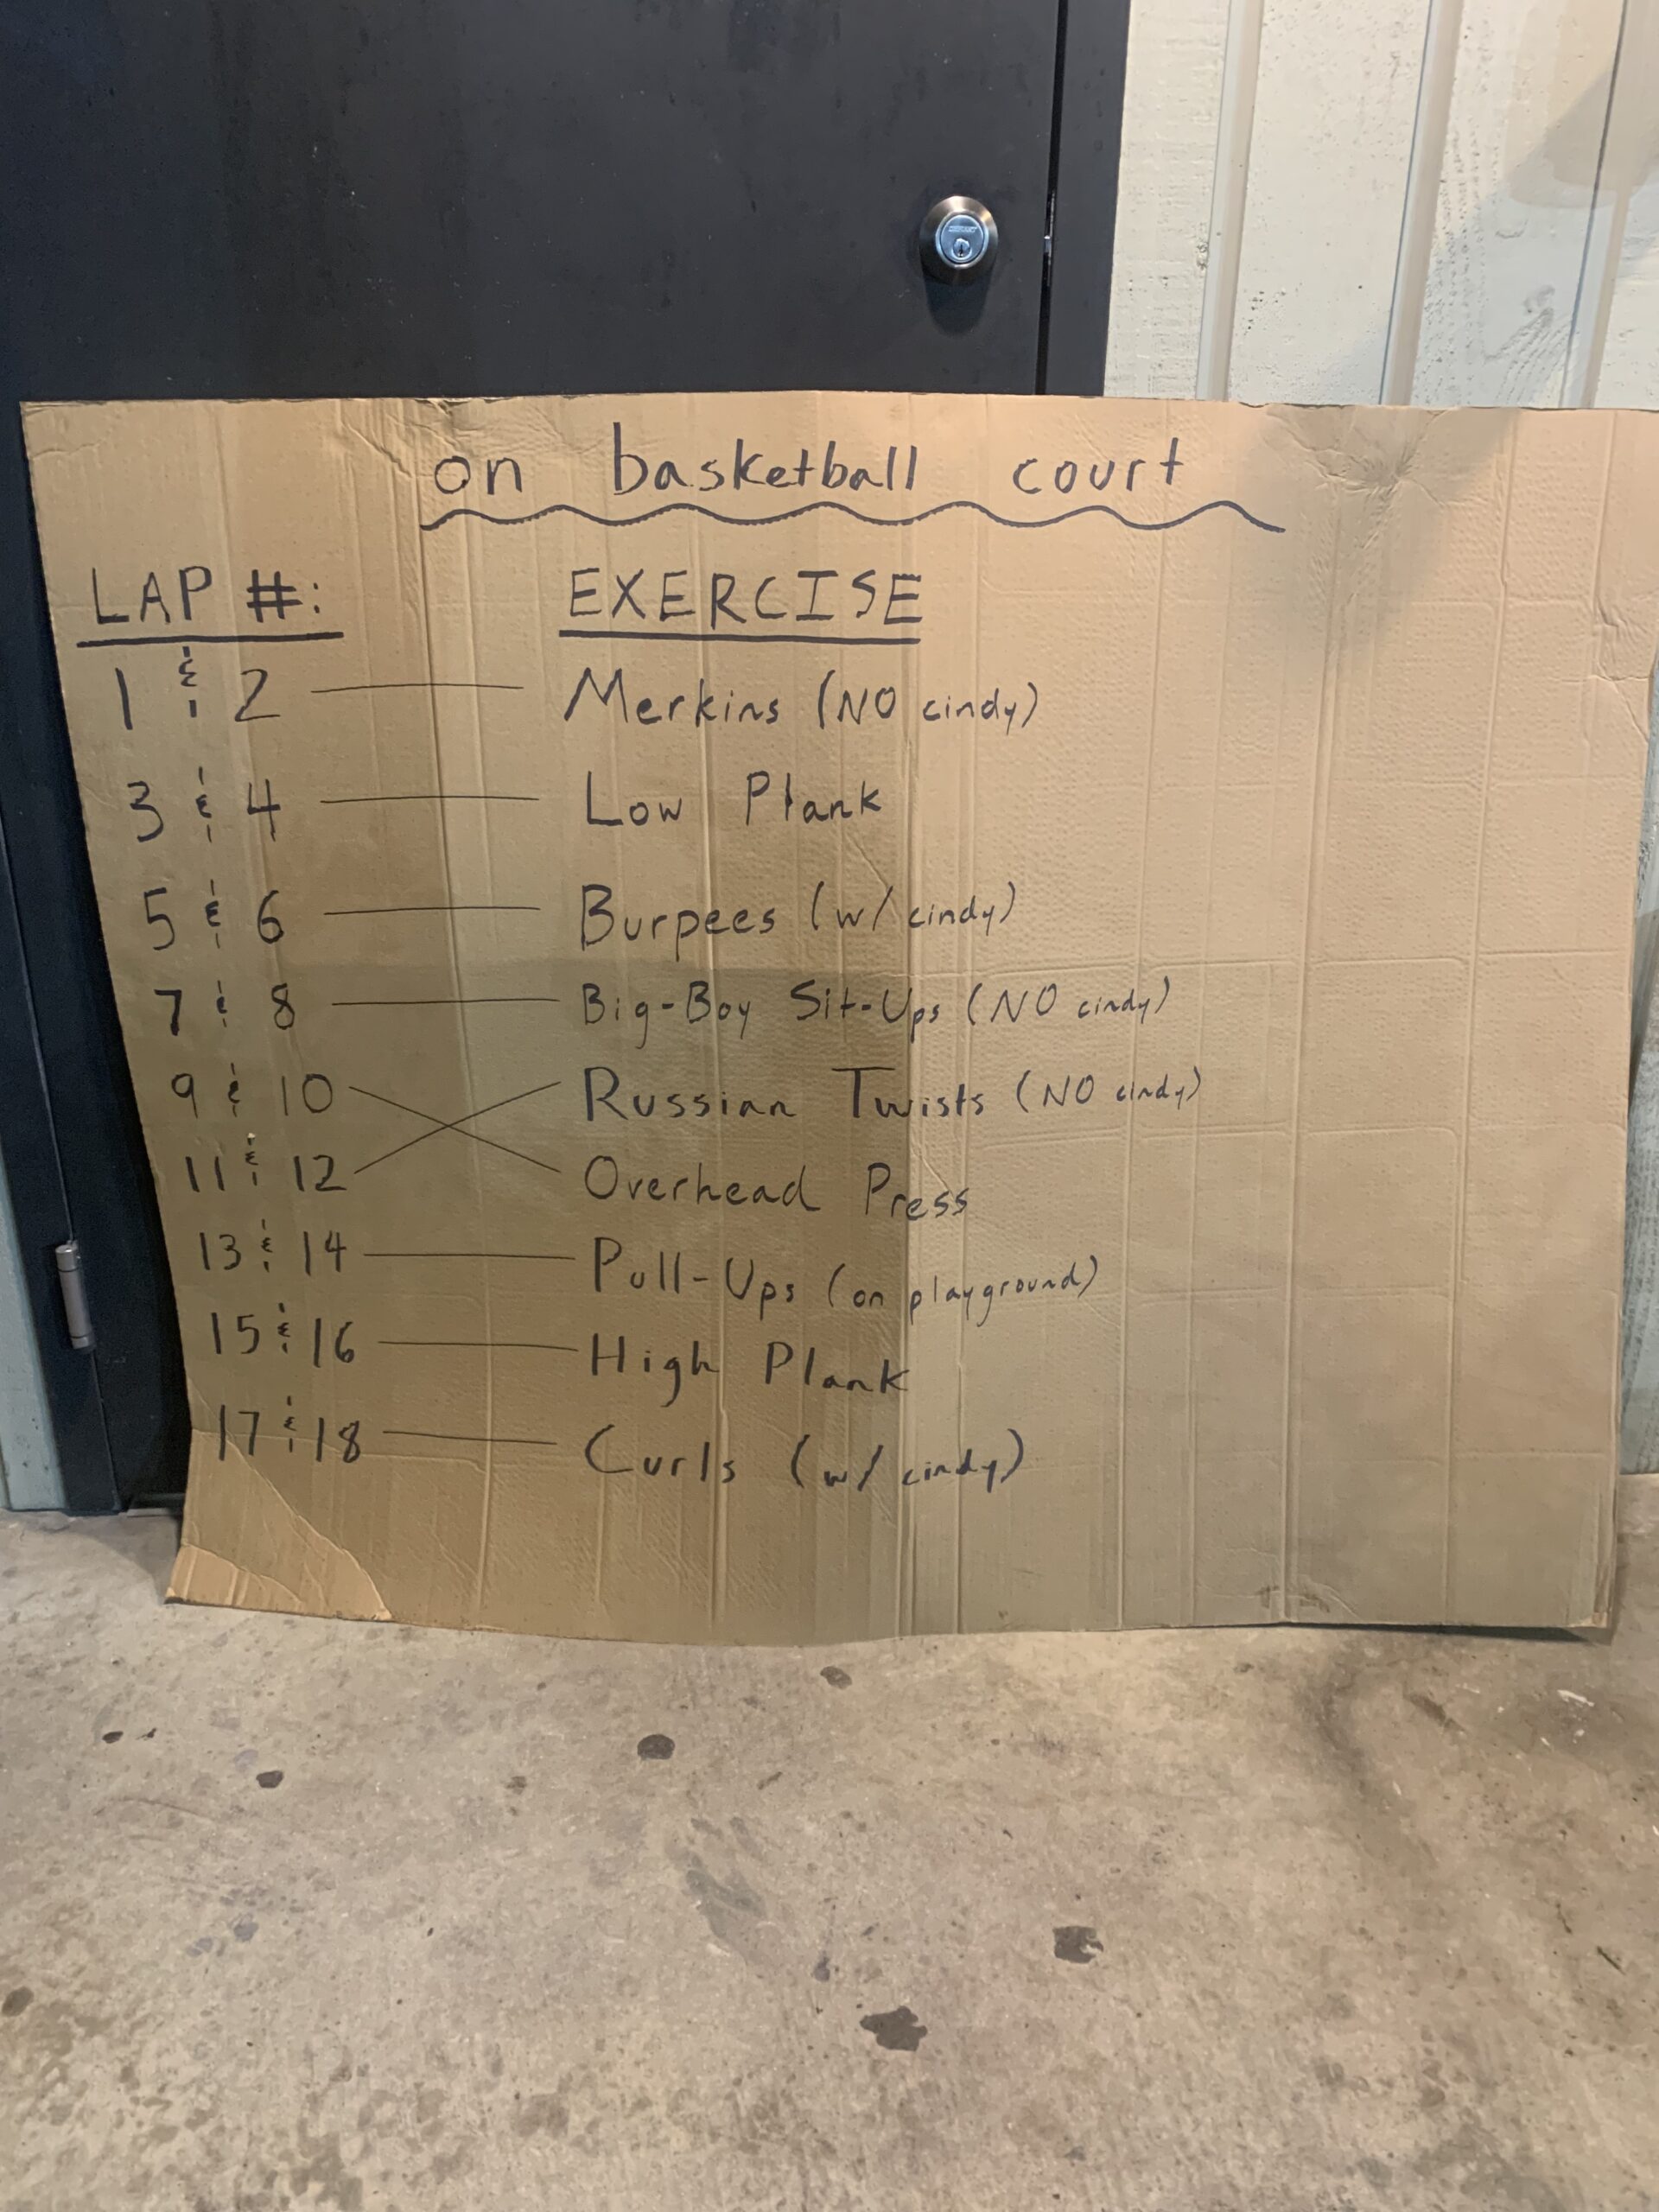 on basketball court
LAP #: EXERCISE
1 & 2 Merkins (NO cindy)
3 & 4 Low Plank
5 & 6 Burpees (w/ cindy)
7 & 8 Big-Boy Sit-Ups (NO cindy)
9 & 10 Russian Twists (NO cindy)
11 & 12 Overhead Press
13 & 14 Pull-Ups (on playground)
15 & 16 High Plank
17 & 18 Curls (w/ cindy)